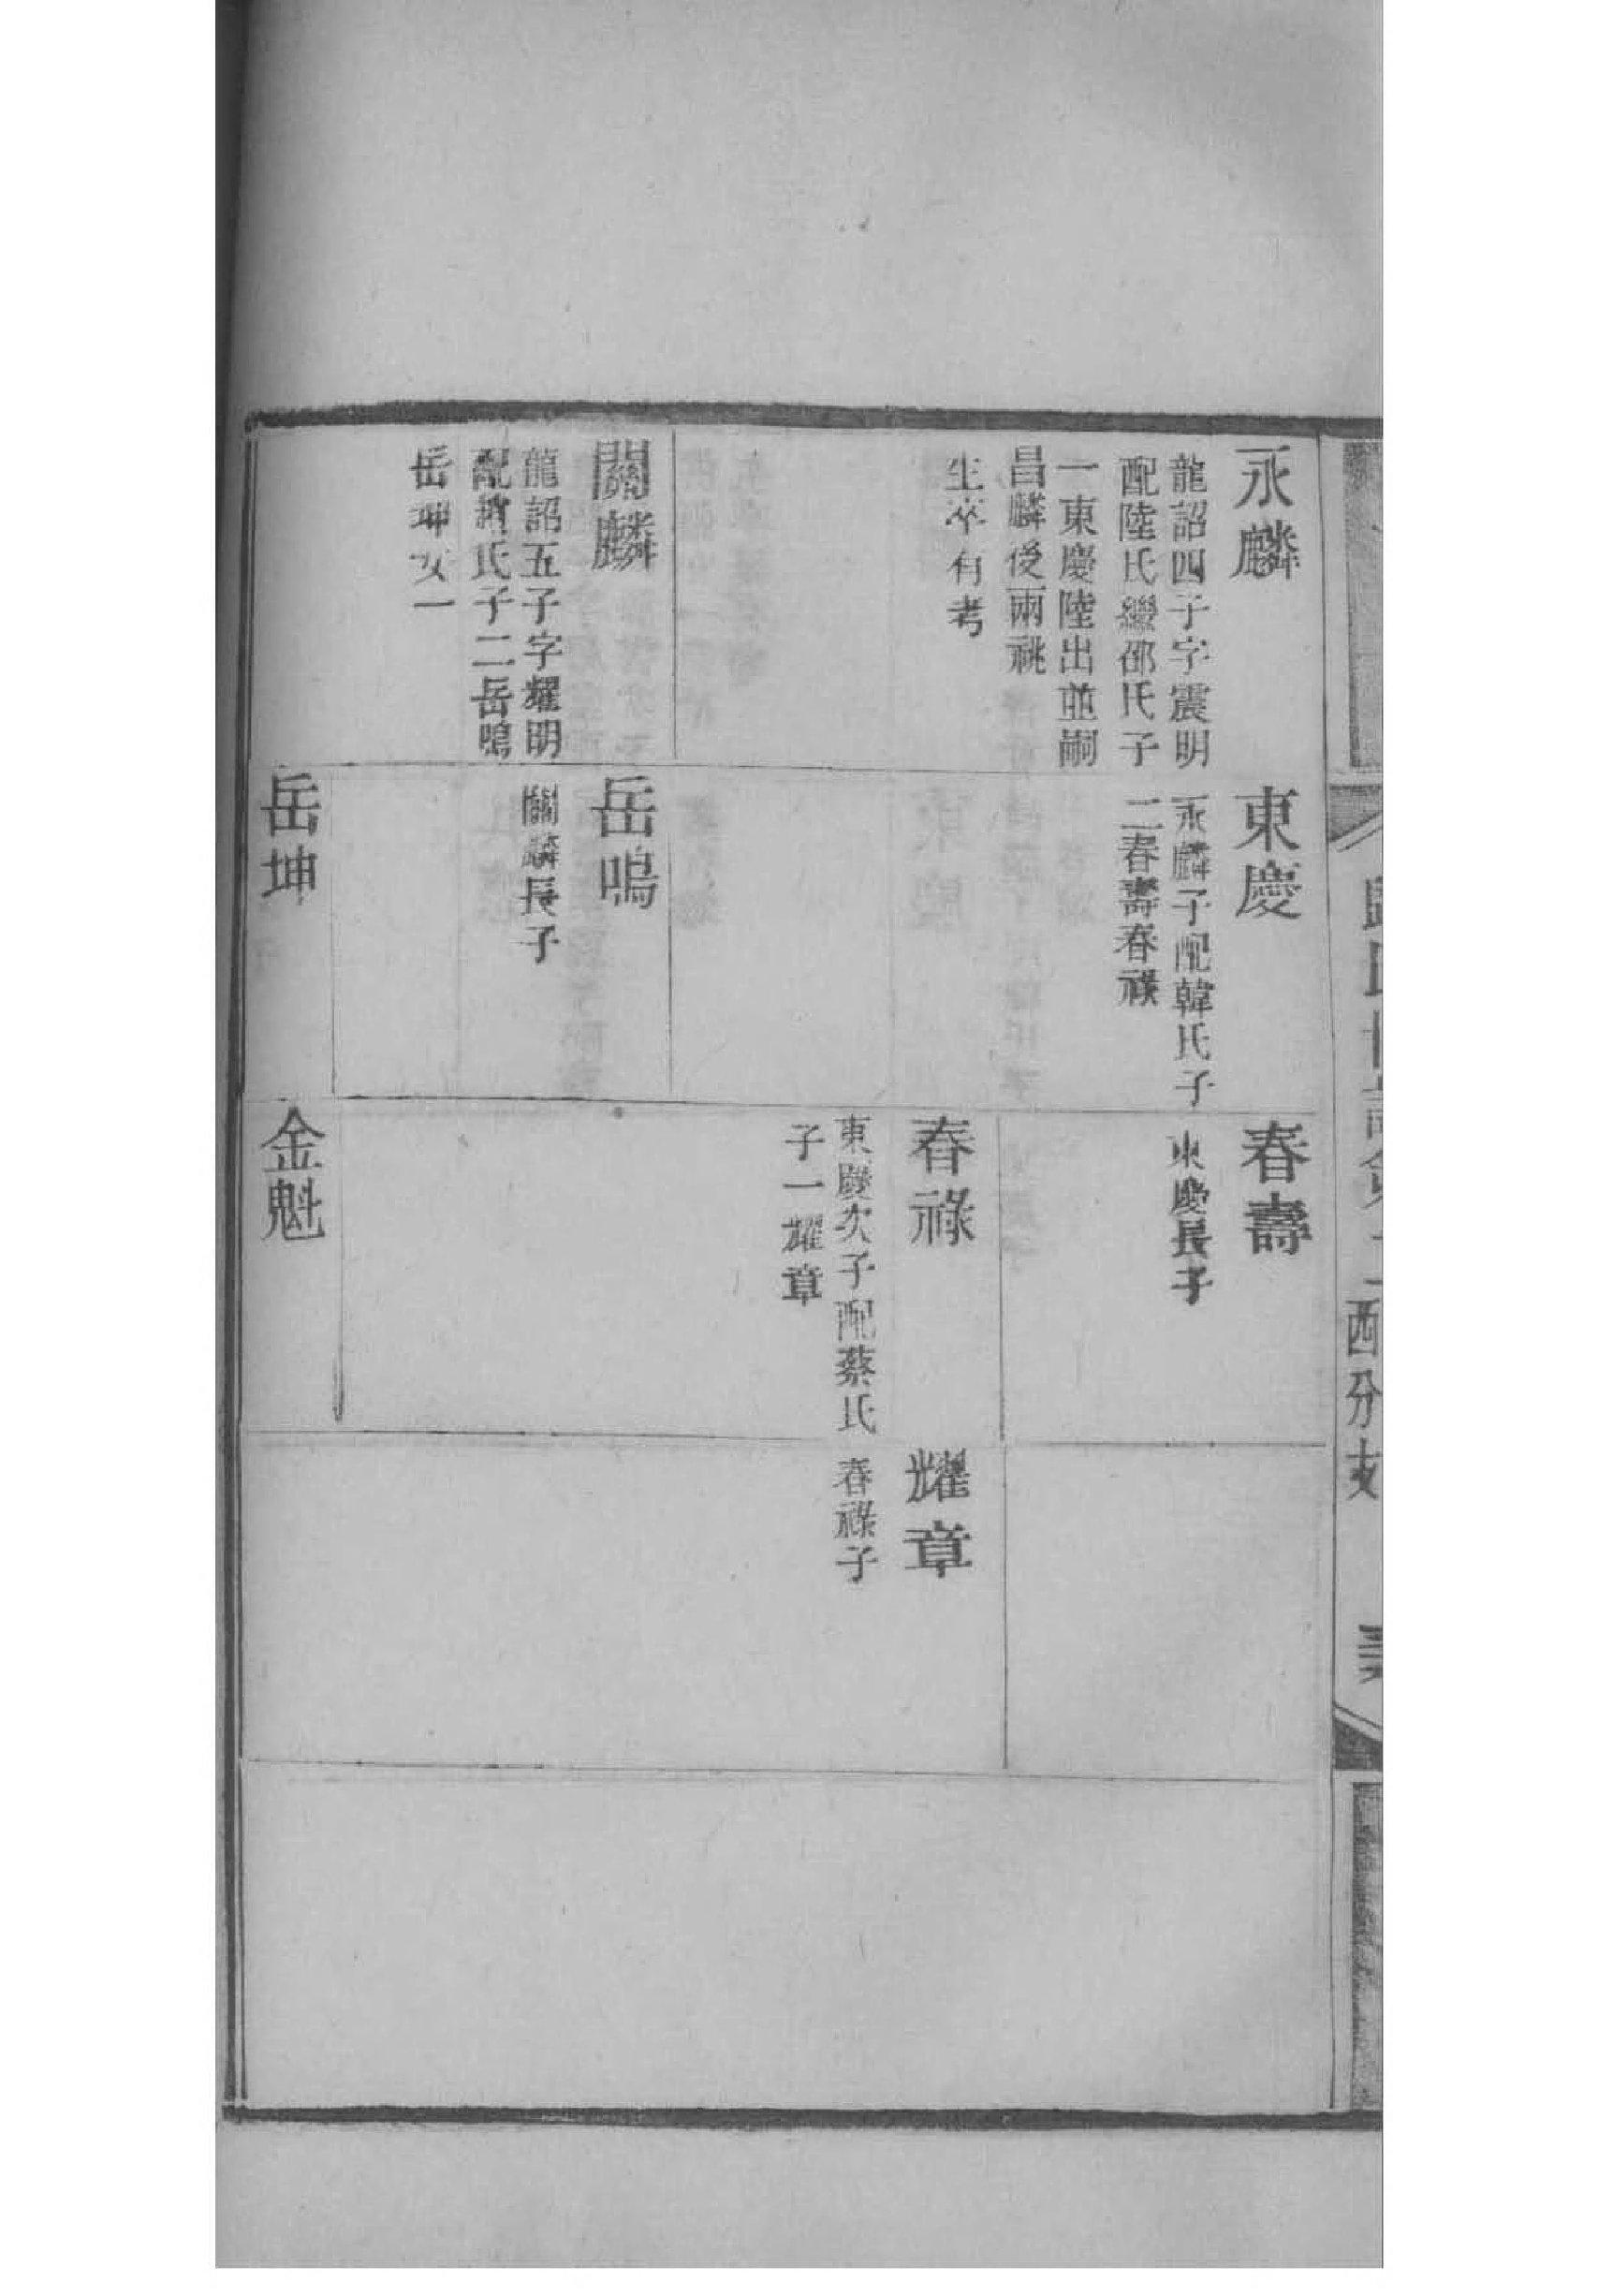 永麟
龍詔四子字震明
配陸氏繼邵氏子
一東慶陸出並嗣
昌麟後兩祧
生卒有考
關麟
龍詔五子字耀明
配 氏子二岳鳴
岳坤女一
東慶
永麟子配韓氏子
二春壽春祿
岳鳴
關麟長子
岳坤
春壽
東慶長子
春祿
東慶次子配蔡氏
子一耀章
金魁
耀章
春祿子
西分支